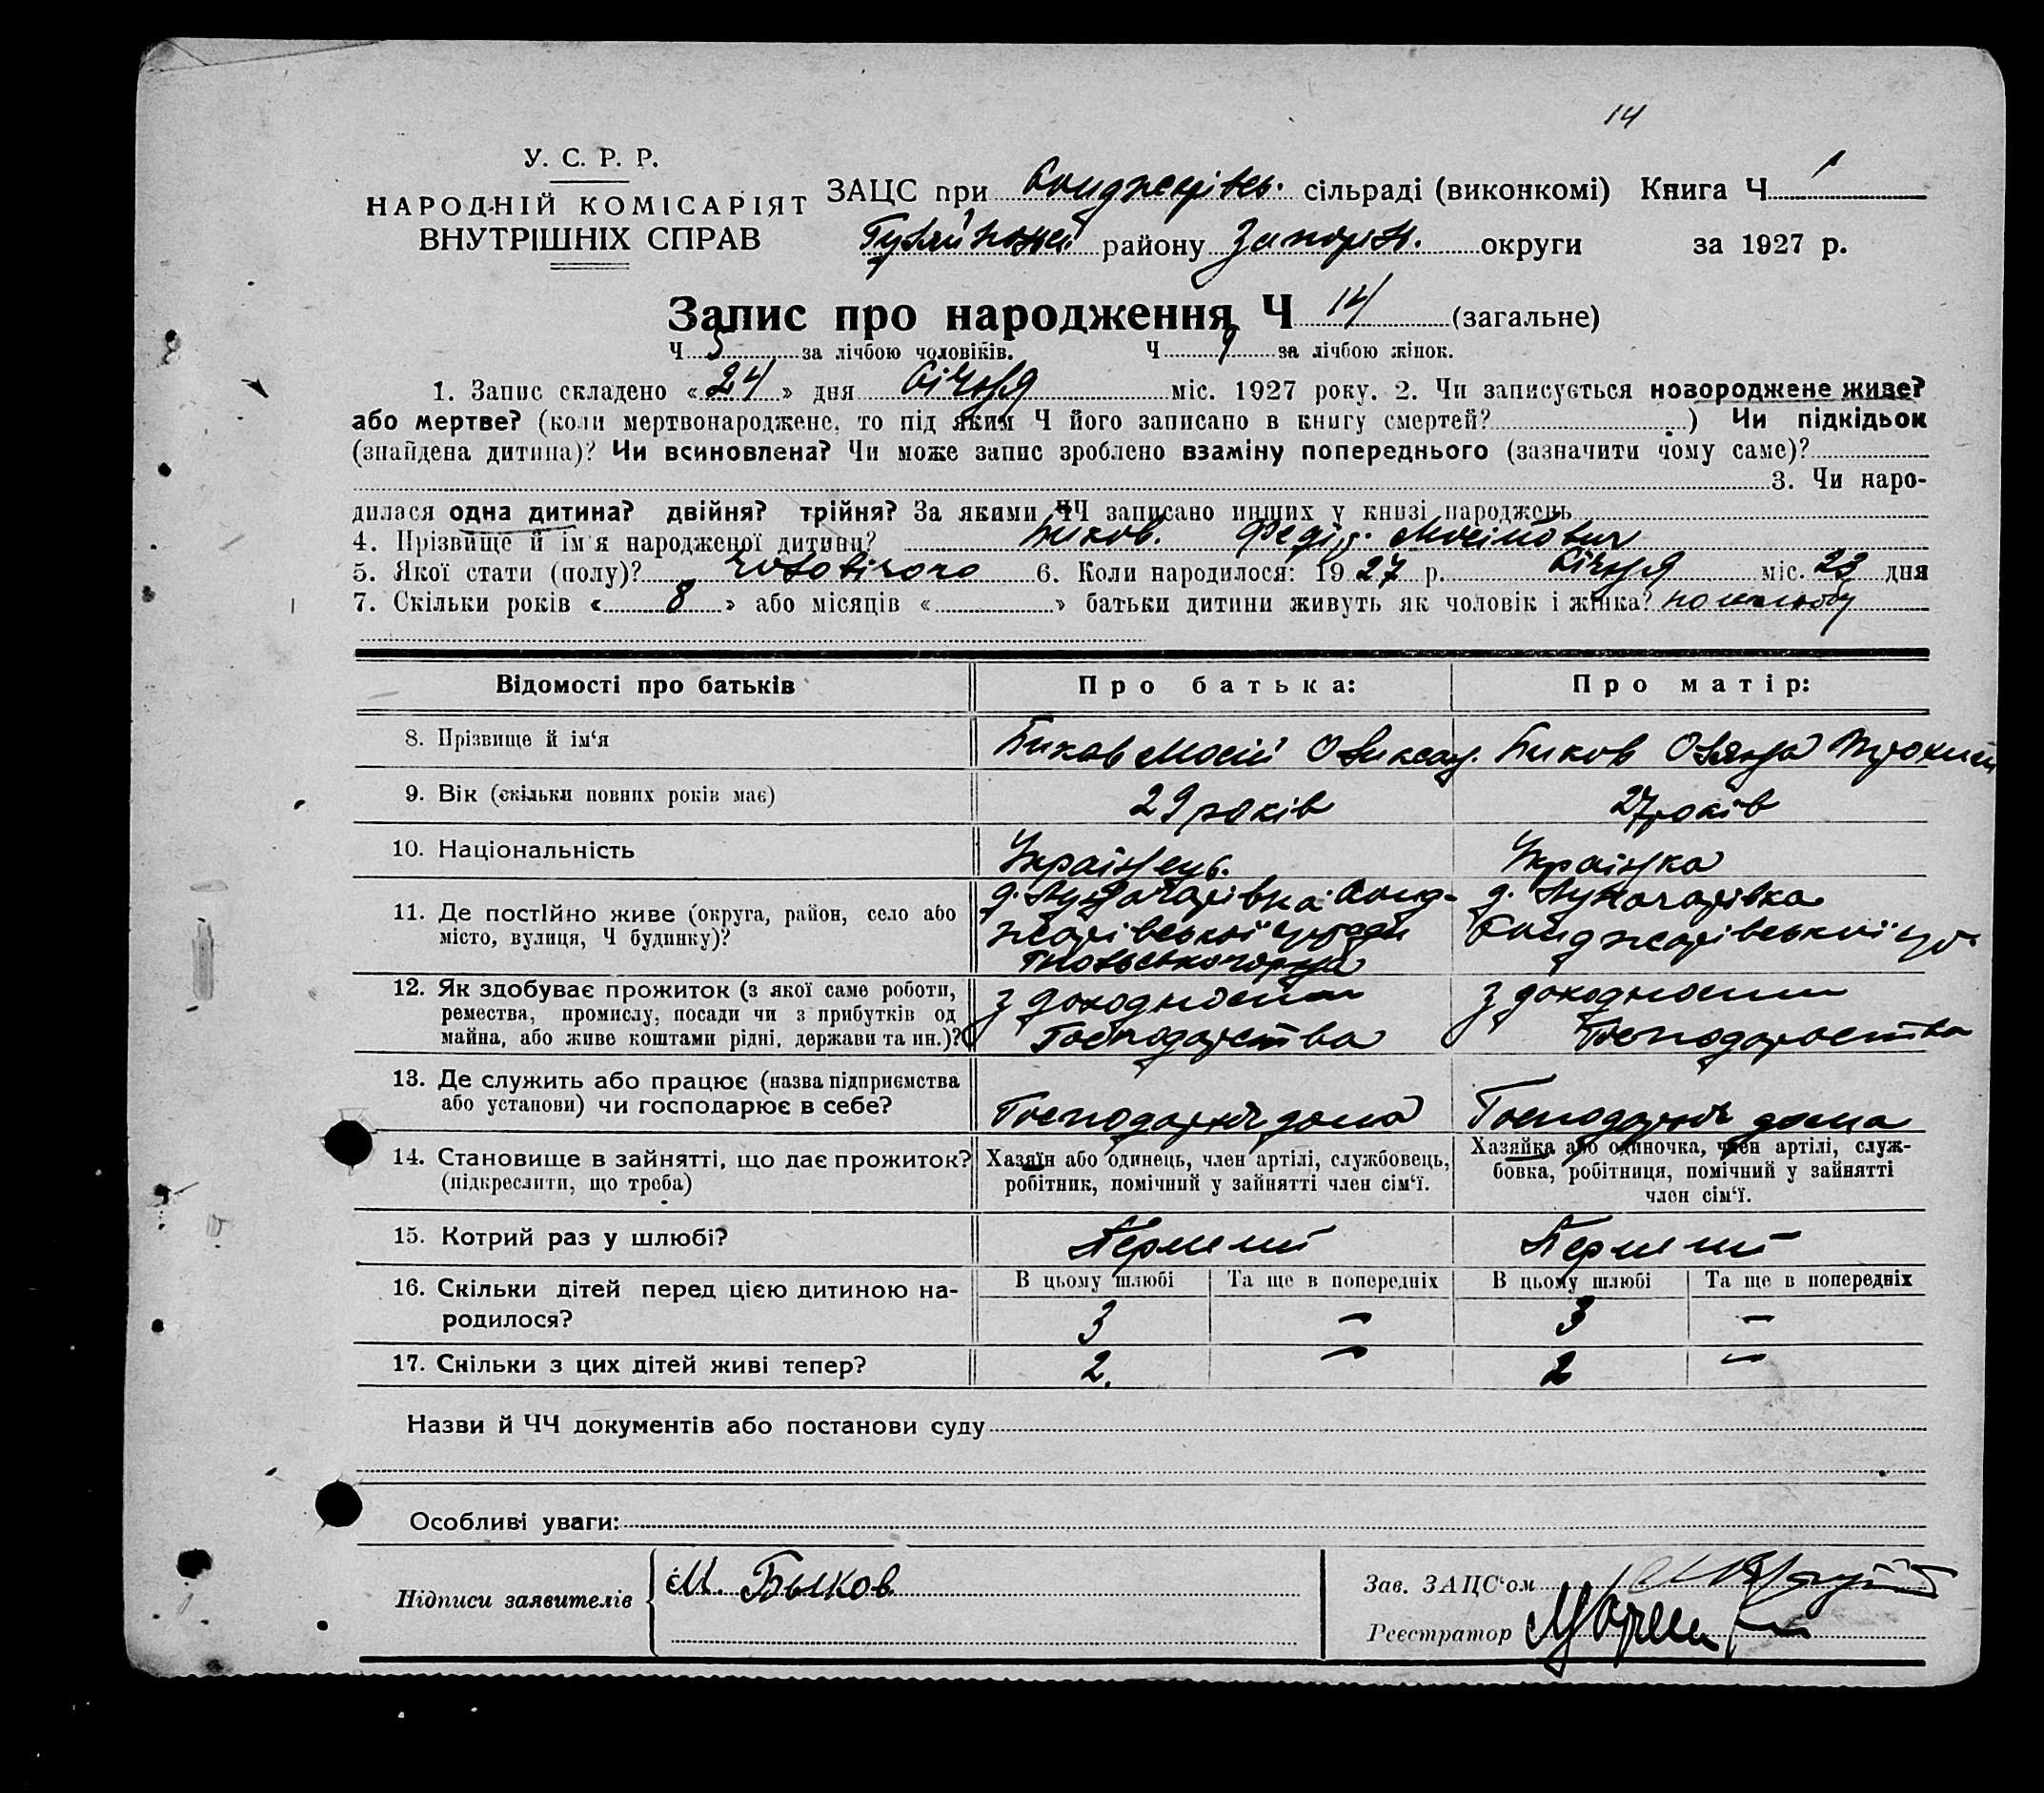 14
У. С. Р. Р.
НАРОДНІЙ КОМІСАРІЯТ
ВНУТРІШНІХ СПРАВ
ЗАЦС при сільраді (виконкомі) Книга Ч 1
району Запоріз. округи за 1927 р.
Запис про народження Ч 14 (загальне)
Ч 5 за лічбою чоловіків. Ч 9 за лічбою жінок.
1. Запис складено « 24 » дня Січня міс. 1927 року. 2. Чи записується новороджене живе?
або мертве? (коли мертвонароджене, то під яким Ч його записано в книгу смертей? ) Чи підкідьок
(знайдена дитина)? Чи всиновлена? Чи може запис зроблено взаміну попереднього (зазначити чому саме)?
3. Чи наро-
дилася одна дитина? двійня? трійня? За якими ЧЧ записано инших у книзі народжень
4. Прізвище й ім'я народженої дитини? Биков. Федір. Мосійович
5. Якої стати (полу)? чоловічого 6. Коли народилося: 19 27 р. Січня міс. 23 дня
7. Скільки років « 8 » або місяців « » батьки дитини живуть як чоловік і жінка? по шлюбу
Відомості про батьків
Про батька:
Про матір:
8. Прізвище й ім'я
Биков Мосій Олексан.
Биков Оляна
9. Вік (скільки повних років має)
29 років
27 років
10. Національність
Українець.
Українка
11. Де постійно живе (округа, район, село або
місто, вулиця, Ч будинку)?
д. Луначарівка
д. Луначарівка
12. Як здобуває прожиток (з якої саме роботи,
ремества, промислу, посади чи з прибутків од
майна, або живе коштами рідні, держави та ин.)?
з доходности
Господарства
з доходности
Господарства
13. Де служить або працює (назва підприємства
або установи) чи господарює в себе?
Господарює дома
Господарює дома
14. Становище в зайнятті, що дає прожиток?
(підкреслити, що треба)
Хазяїн або одинець, член артілі, службовець,
робітник, помічний у зайнятті член сім'ї.
Хазяйка або одиночка, член артілі, служ-
бовка, робітниця, помічний у зайнятті
член сім'ї.
15. Котрий раз у шлюбі?
Перший
Перший
16. Скільки дітей перед цією дитиною на-
родилося?
В цьому шлюбі Та ще в попередніх В цьому шлюбі Та ще в попередніх
3 — 3 —
17. Скільки з цих дітей живі тепер?
2. — 2 —
Назви й ЧЧ документів або постанови суду
Особливі уваги:
Підписи заявителів
М. Быков
Зав. ЗАЦС'ом
Реєстратор